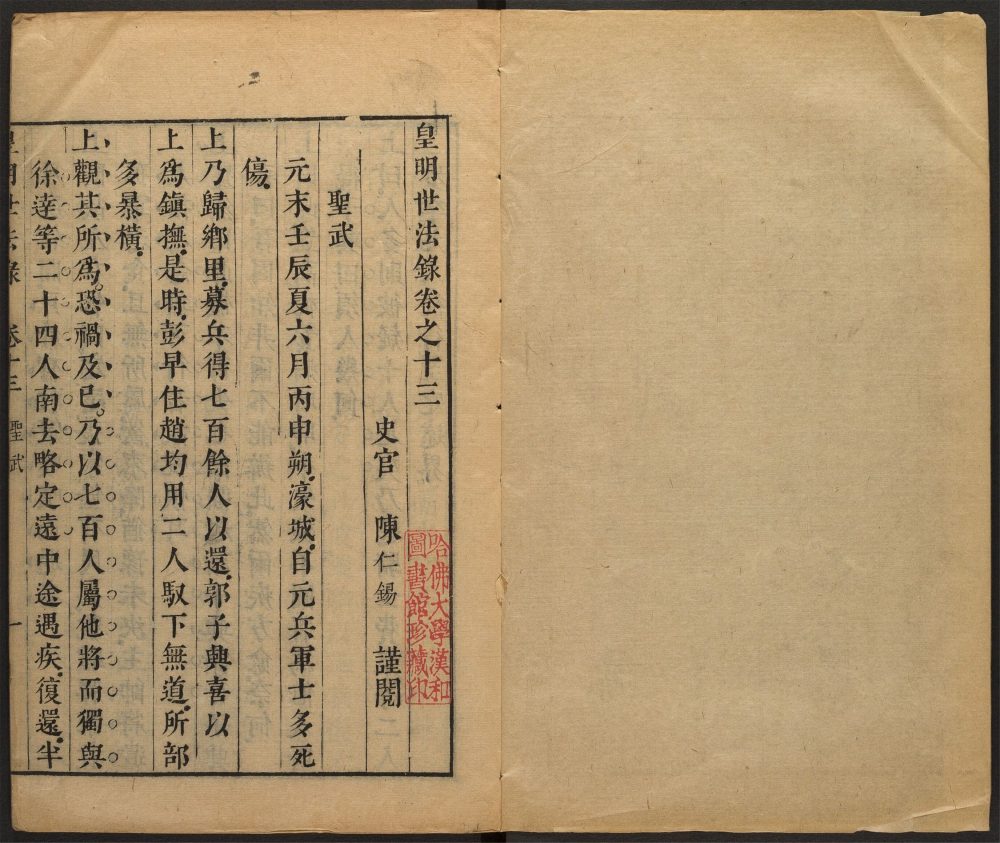 皇明世法錄卷之十三
史官 陳仁錫 謹閱
哈佛大學漢和
圖書館珍藏印
聖武
元末壬辰夏六月丙申朔濠城自元兵軍士多死
傷
上乃歸鄉里募兵得七百餘人以還郭子興喜以
上為鎮撫是時彭早住趙均用二人馭下無道所部
多暴橫
上觀其所為恐禍及已乃以七百人屬他將而獨與
徐達等二十四人南去略定遠中途遇疾復還半
皇明世法錄 卷十三 聖武 一